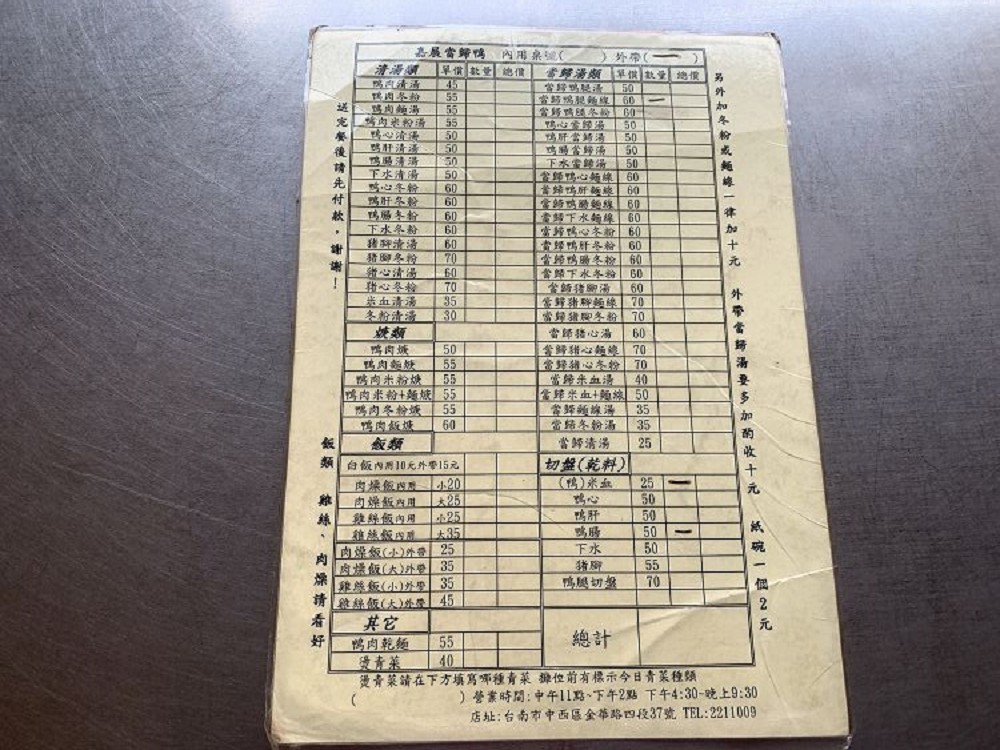 嘉展當歸鴨 內用桌號( ) 外帶( 一 )
清湯類 單價 數量 總價 當歸湯類 單價 數量 總價
鴨肉清湯 45 當歸鴨腿湯 50
鴨肉冬粉 55 當歸鴨腿麵線 60 一
鴨肉麵湯 55 當歸鴨腿冬粉 60
鴨肉米粉湯 55 鴨心當歸湯 50
鴨心清湯 50 鴨肝當歸湯 50
鴨肝清湯 50 鴨腸當歸湯 50
鴨腸清湯 50 下水當歸湯 50
下水清湯 50 當歸鴨心麵線 60
鴨心冬粉 60 當歸鴨肝麵線 60
鴨肝冬粉 60 當歸鴨腸麵線 60
鴨腸冬粉 60 當歸下水麵線 60
下水冬粉 60 當歸鴨心冬粉 60
豬腳清湯 60 當歸鴨肝冬粉 60
豬腳冬粉 70 當歸鴨腸冬粉 60
豬心清湯 60 當歸下水冬粉 60
豬心冬粉 70 當歸豬腳湯 60
米血清湯 35 當歸豬腳麵線 70
冬粉清湯 30 當歸豬腳冬粉 70
焿類 當歸豬心湯 60
鴨肉焿 50 當歸豬心麵線 70
鴨肉麵焿 55 當歸豬心冬粉 70
鴨肉米粉焿 55 當歸米血湯 40
鴨肉米粉+麵焿 55 當歸米血+麵線 50
鴨肉冬粉焿 55 當歸麵線湯 35
鴨肉飯焿 60 當歸冬粉湯 35
飯類 當歸清湯 25
白飯內用10元外帶15元 切盤(乾料)
肉燥飯內用 小20 (鴨)米血 25 一
肉燥飯內用 大25 鴨心 50
雞絲飯內用 小25 鴨肝 50
雞絲飯內用 大35 鴨腸 50 一
肉燥飯(小)外帶 25 下水 50
肉燥飯(大)外帶 35 豬腳 55
雞絲飯(小)外帶 35 鴨腿切盤 70
雞絲飯(大)外帶 45
其它 總計
鴨肉乾麵 55
燙青菜 40
燙青菜請在下方填寫哪種青菜 攤位前有標示今日青菜種類
( ) 營業時間:中午11點~下午2點 下午4:30~晚上9:30
店址:台南市中西區金華路四段37號 TEL:2211009
送完餐後請先付款,謝謝!
飯類 雞絲、肉燥請看好
另外加冬粉或麵線一律加十元 外帶當歸湯要多加酌收十元 紙碗一個2元